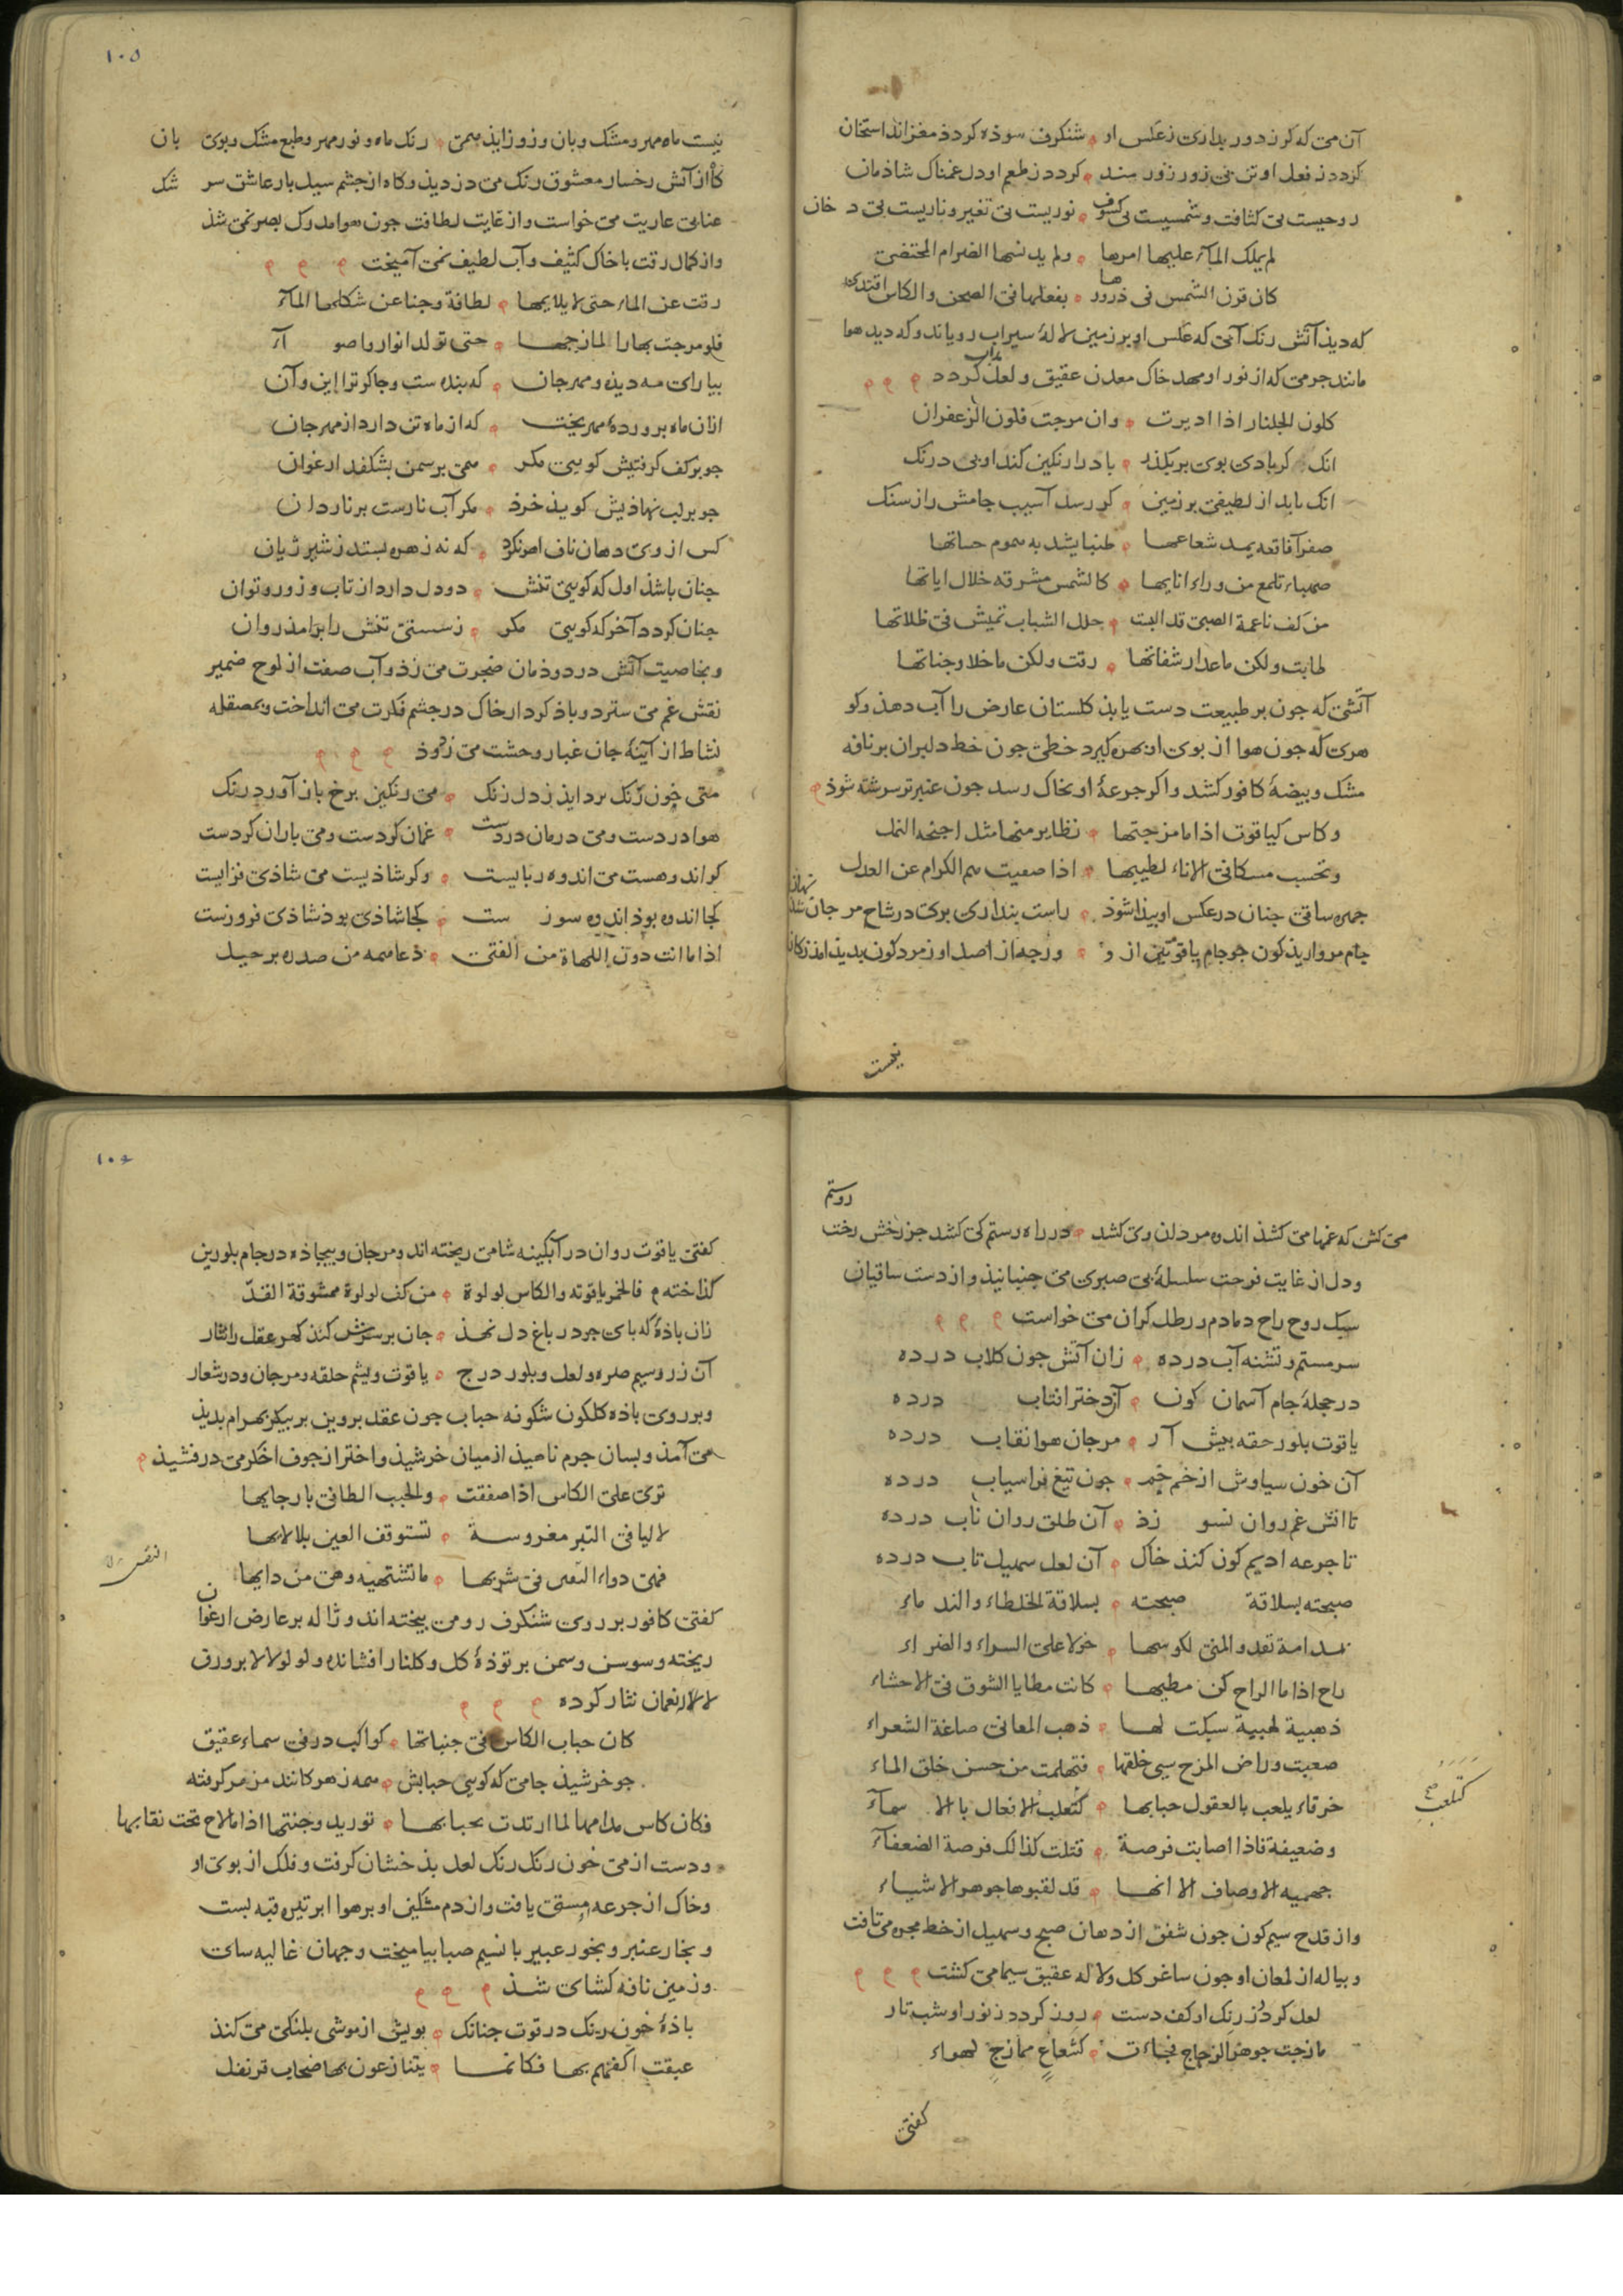 آن می که کر زدور بداری زعکس او شنکرف سوده کردد مغز اندر استخان
کردد زفعل او تن بی زور زورمند کردد زطعم او دل غمناک شاذمان
روحیست بی کثافت و شمسیست بی کسوف نوریست بی تغیر و ناریست بی دخان
لم یملک المآء علیها امرها ولم یدنسها الضرام المحتضی
کان قرن الشمس فی ذرورها بفعلها فی الصحن والکاس اقتدی
که دیذ آتش رنک آبی که عکس او بر زمین لالهٔ سیراب رویاند و که دید هوا
مانند جرمی که از نور او مهد خاک معدن عقیق و لعل مذاب کردد
کلون الجلنار اذا ادیرت وان مزجت فلون الزعفران
انک کر بادی بوی بر بکذرد باد را رنکین کند او بی درنک
انک باید از لطیفی بر زمین کر رسد آسیب جامش را ز سنک
صهباء تلمع من وراء انایها کالشمس مشرقه خلال ایاتها
من کف ناعمة الصبی قد البست حلل الشباب تمیش فی ظلاتها
طابت ولکن ماعدا رشفاتها رقت ولکن ماخلا وجناتها
آتشی که چون بر طبیعت دست یابذ کلستان عارض را آب دهذ و کو
هری که جون هوا از بوی او بهره کیرد خطی جون خط دلبران بر نافه
مشک و بیضهٔ کافور کشد و اکر جرعهٔ او بخاک رسد جون عنبر تر سرشته شوذ
وکاس کیاقوت اذا ما مزجتها نظایر منها مثل اجنحه النمل
وتحسب مسکا فی الاناء لطیبها اذا صفیت سم الکرام عن العدل
جهره ساقی جنان در عکس او بیذا شوذ راست بنداری بری در شاخ مرجان شد نهان
جام مروارید کون جو جام یاقوتین از و ورجه از اصل او زمرد کون بدید امذ زکان
نیست

۱۰۵
نیست ماه و مهر و مشک و بان و زو زایذ همی رنک ماه و نور مهر و طبع مشک و بوی بان
کاه از آتش رخسار معشوق رنک می دزدیذ و کاه از جشم سیل بار عاشق سرشک
عنابی عاریت می خواست و از غایت لطافت جون هوا مدرک بصر نمی شذ
و از کمال رقت با خاک کثیف و آب لطیف نمی آمیخت
رقت عن الماء حتی لا یلایمها لطافة وجفا عن شکلها المآء
فلو مزجت بها را لمازجها حتی تولد انوار و اضوآء
بیارای مه دیذه و مهرجان که بنده ست و جاکر ترا این و آن
ازان ماه بروردهٔ مهر بخت که از ماه تن دارد از مهر جان
جو بر کف کرفتیش کویی مکر همی بر سمن بشکفد ارغوان
جو بر لب نهاذیش کویذ خرذ مکر آب نارست بر ناردان
کس از وی دهان ناف اهو نکرد که نه زهره بستد ز شیر ژیان
جنان باشذ اول که کویی تنش دو دل دارد از تاب و زور و توان
جنان کردد آخر که کویی مکر ز سستی تنش را برامذ روان
و بخاصیت آتش در دوذمان ضجرت می زذ و آب صفت از لوح ضمیر
نقش غم می سترد و باذ کردار خاک در جشم فکرت می انداخت و بمصقله
نشاط از آینهٔ جان غبار وحشت می زدوذ
می خون رنک بردایذ ز دل زنک می رنکین برخ باز آورد رنک
هوا دردست و می درمان دردست غمان کردست و می باران کردست
کر اندوهست می اندوه رباییست و کر شاذیست می شاذی فزاییست
کجا اندوه بوذ اندوه سوزست کجا شاذی بوذ شاذی فروزست
اذا ما انت دون اللهاة من الفتی دعا همه من صدره برحیل

می کش که غمها می کشذ اندوه مردان وی کشد در راه رستم کی کشد جز رخش رخت روستم
و دل از غایت فرحت سلسلهٔ بی صبری می جنبانیذ و از دست ساقیان
سبک روح راح دمادم و رطل کران می خواست
سرمستم و تشنه آب درده زان آتش جون کلاب درده
در حجلهٔ جام آسمان کون آن دختر افتاب درده
یاقوت بلور حقه بیش آر مرجان هوا نقاب درده
آن خون سیاوش از خم جم جون تیغ فراسیاب درده
تا اتش غم روان نسوزذ آن طلق روان ناب درده
تا جرعه ادیم کون کنذ خاک آن لعل سهیل تاب درده
صبحته بسلاقة صبحته بسلاقة الخلطاء والندماء
بمدامة تغدو المنی لکوسها خولا علی السراء والضراء
راح اذا ما الراح کن مطیها کانت مطایا الشوق فی الاحشاء
ذهبیة لهبیة سبکت لها ذهب المعانی صاغة الشعراء
صعبت و راض المزح سیی خلقها فتعلمت من حسن خلق الماء
خرقاء یلعب بالعقول حبابها کتلعب الافعال بالاسمآء
وضعیفة فاذا اصابت فرصة قتلت کذالک فرصة الضعفآء
جهمیه الاوصاف الا انها قد لقبوها جوهر الاشیاء
و از قدح سیم کون جون شفق از دهان صبح و سهیل از خط مجره می تافت
و بیاله از لمعان او جون ساغر کل و لاله عقیق سیما می کشت
لعل کردذ ز رنک او کف دست روز کردد ز نور او شب تار
مازجت جوهر الزجاج فجاءت کشعاع ممازج لهواء
کتلعب صح
کفتی

۱۰۶
کفتی یاقوت روان در آبکینه شامی ریخته اند و مرجان و بیجاذه در جام بلورین
کذاخته فالخمر یاقوته والکاس لولوة من کف لولوة ممشوقة القدّ
زان باذهٔ که بای جو در باغ دل نهذ جان بر سرش کند کهر عقل را نثار
آن زر و سیم صره و لعل و بلور درج یاقوت و یشم حلقه و مرجان و در شعار
و بر روی باذه کلکون شکوفه حباب جون عقد بروین بر بیکر بهرام بدیذ
می آمذ و بسان جرم ناهیذ از میان خرشیذ و اختر از جوف اخکر می درفشیذ
تری علی الکاس اذا صفقت والحبب الطافی بارجایها
لالیا فی التبر مغروسة تستوقف العین بلالایها
فهی دواء النفس فی شربها ما تشتهیه وهی من دایها
النفس
کفتی کافور بر روی شنکرف رومی بیخته اند و ژاله بر عارض ارغوان
ریخته و سوسن و سمن بر توذهٔ کل و کلنار افشانده و لولو لالا بر ورق
لاله نعمان نثار کرده
کان حباب الکاس فی جنباتها کواکب در فی سماء عقیق
جو خرشیذ جامی که کویی حبابش همه زهر کانند مز مر کرفته
فکان کاس مدامها لما ارتدت بحبابها تورید وجنتها اذا ما لاح تحت نقابها
و دست از می خون رنک رنک لعل بذخشان کرفت و فلک از بوی او
و خاک از جرعه مستی یافت و از دم مشکین او بر هوا ابر تیره قبه بست
و بخار عنبر و بخور عبیر با نسیم صبا بیامیخت و جهان غالیه سای
و زمین نافه کشای شذ
باذهٔ خون رنک در توت جنانک بویش از موشی بلنکی می کنذ
عبقت اکفهم بها فکانما یتنازعون بها ضحاب قرنفل